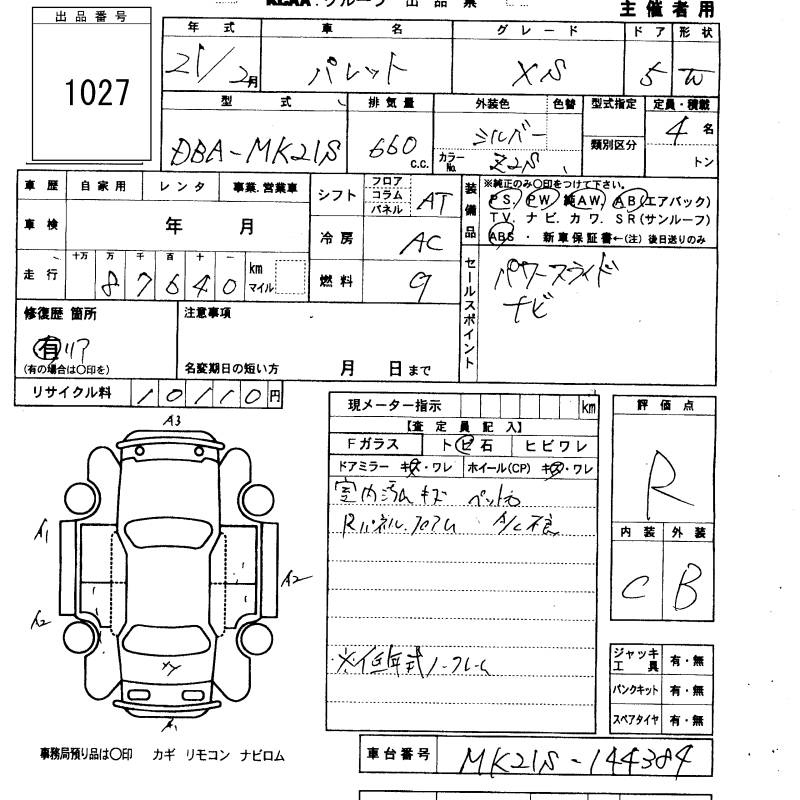 KCAA.グループ 出品票
主催者用
出品番号
1027
年式 車名 グレード ドア 形状
21/2月 パレット XS 5 W
型式 排気量 外装色 色替 型式指定 定員・積載
DBA-MK21S 660 c.c. シルバー 類別区分 4名
カラーNo. Z2S トン
車歴 自家用 レンタ 事業.営業車
車検 年 月
走行 十万 万 千 百 十 一
87640 km マイル
シフト フロア コラム パネル AT
冷房 AC
燃料 9
装備品
※純正のみ○印をつけて下さい。
PS. PW 純AW. AB(エアバック)
TV. ナビ. カワ. SR(サンルーフ)
ABS ・ 新車保証書←(注) 後日送りのみ
セールスポイント
パワースライド
ナビ
修復歴 箇所 注意事項
有 リア
(有の場合は○印を) 名変期日の短い方 月 日まで
リサイクル料 10110円
現メーター指示 km
【査定員記入】
Fガラス ト ビ 石 ヒビワレ
ドアミラー キズ・ワレ ホイール(CP) キズ・ワレ
室内汚ムキズ
Rパネル.フロアム A/C不良
※低年式ノークレーム
評価点
R
内装 外装
C B
A3
A1
A2
A2
A1
ジャッキ工具 有・無
パンクキット 有・無
スペアタイヤ 有・無
事務局預り品は○印 カギ リモコン ナビロム
車台番号 MK21S-144384